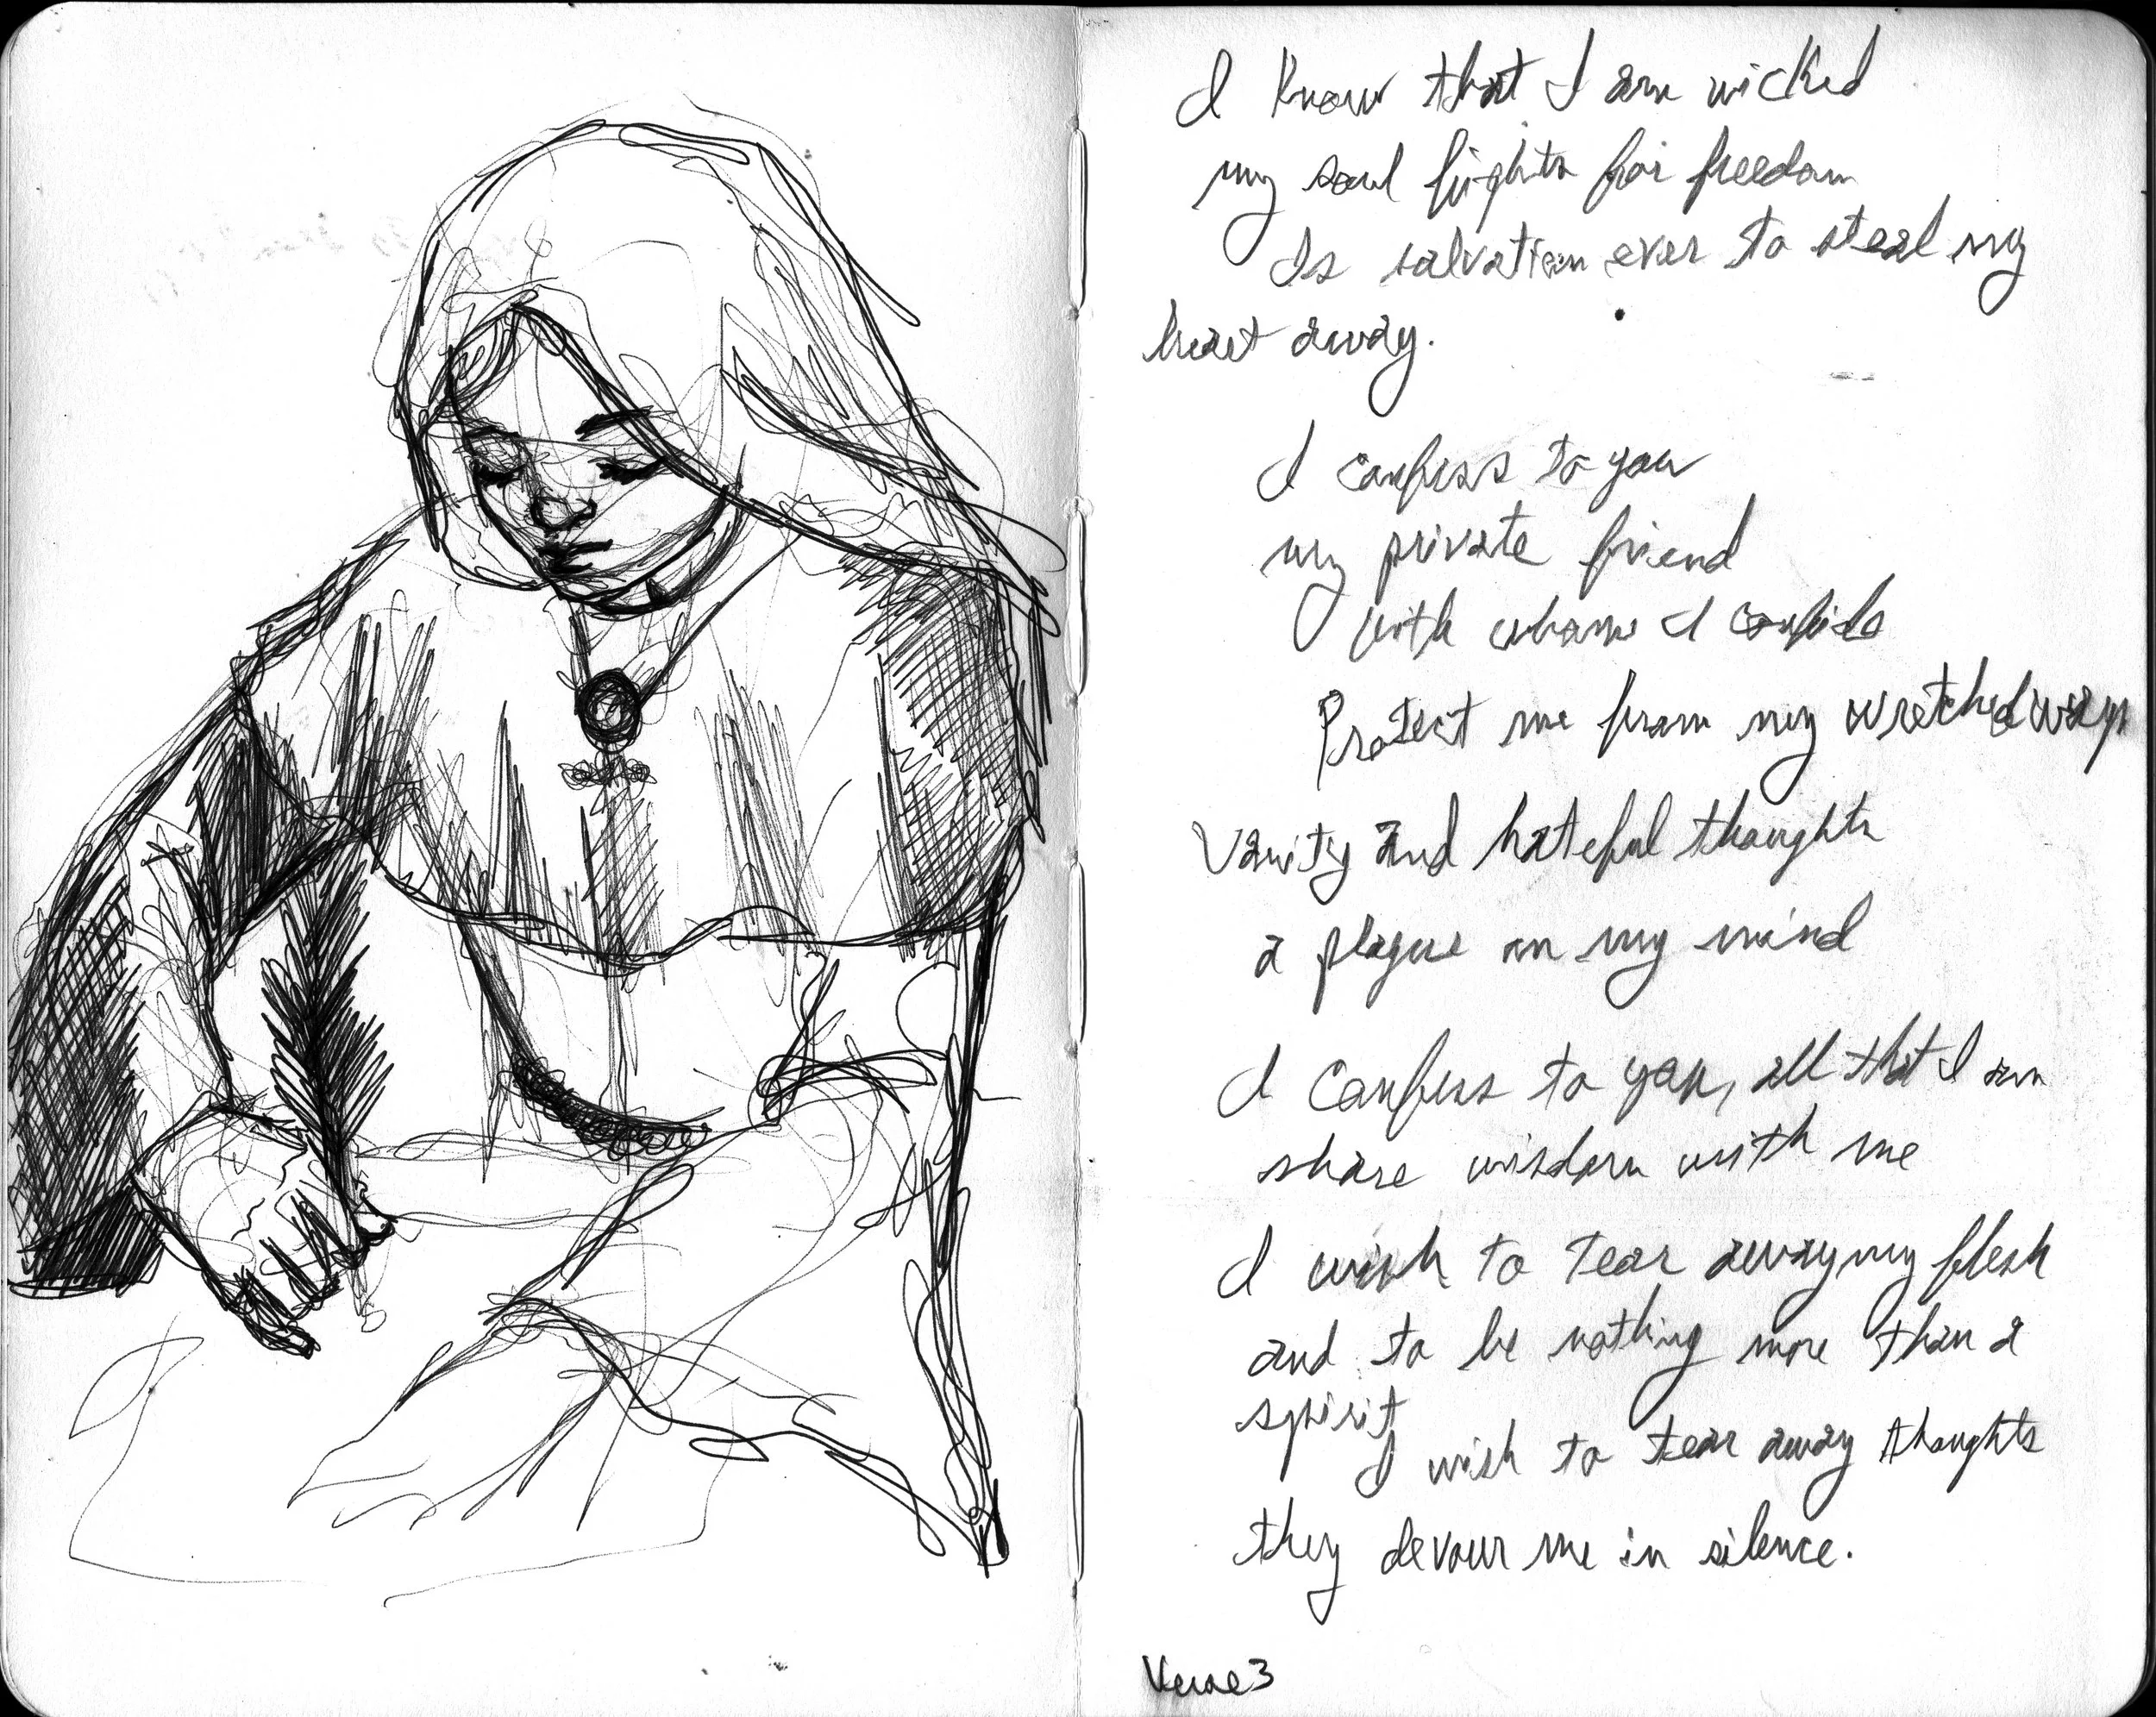 I know that I am wicked
my soul fights for freedom
Is salvation ever to steal my
heart away.
I confess to you
my private friend
with whom I confide
Protect me from my wretched ways
Vanity and hateful thoughts
a plague on my mind
I confess to you, all that I am
share wisdom with me
I wish to tear away my flesh
and to be nothing more than a
spirit
I wish to tear away thoughts
they devour me in silence.
Verse 3